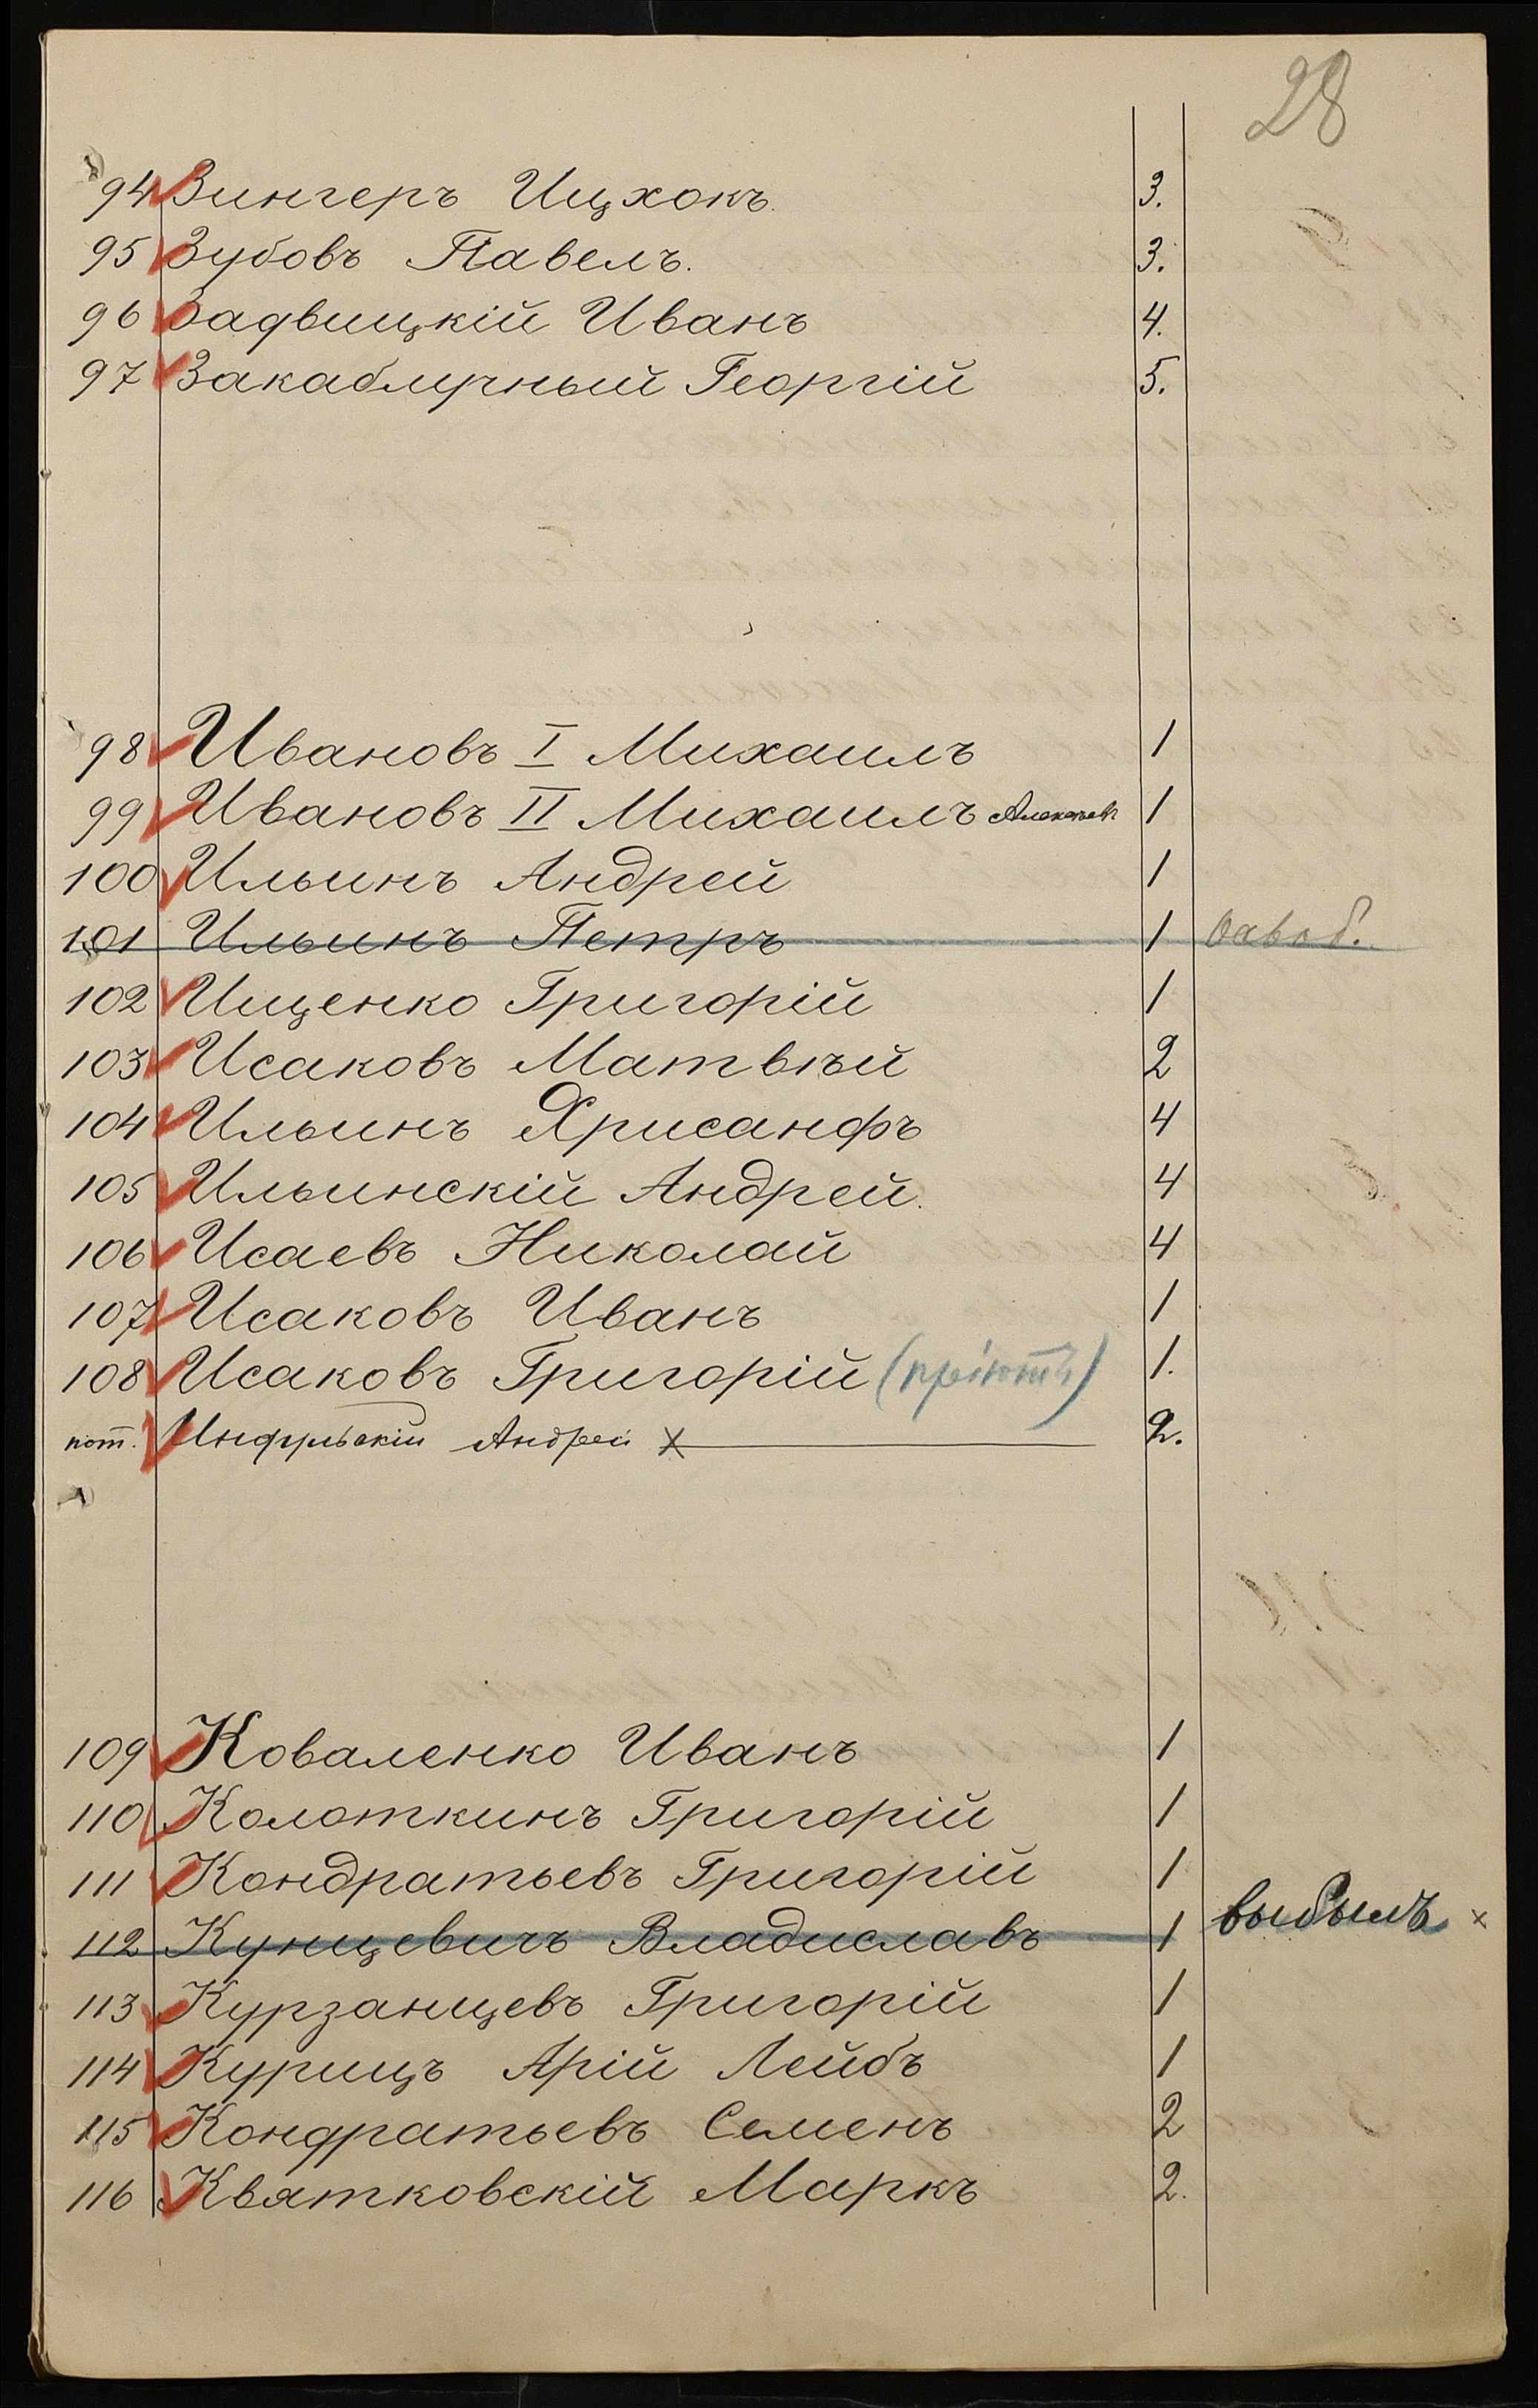 28
94 Зингеръ Ицхокъ. 3.
95 Зубовъ Павелъ. 3.
96 Задвицкій Иванъ 4.
97 Закаблучный Георгій 5.
98 Ивановъ I Михаилъ 1
99 Ивановъ II Михаилъ 1
100 Ильинъ Андрей 1
101 Ильинъ Петръ 1
102 Ищенко Григорій 1
103 Исаковъ Матвѣй 2
104 Ильинъ Хрисанфъ 4
105 Ильинскій Андрей. 4
106 Исаевъ Николай 4
107 Исаковъ Иванъ 1
108 Исаковъ Григорій (пріютъ) 1.
Андрей х 2.
109 Коваленко Иванъ 1
110 Колоткинъ Григорій 1
111 Кондратьевъ Григорій 1
112 Кунцевичъ Владиславъ 1 выбылъ х
113 Курзанцевъ Григорій 1
114 Курицъ Арій Лейбъ 1
115 Кондратьевъ Семенъ 2
116 Квятковскій Маркъ 2.